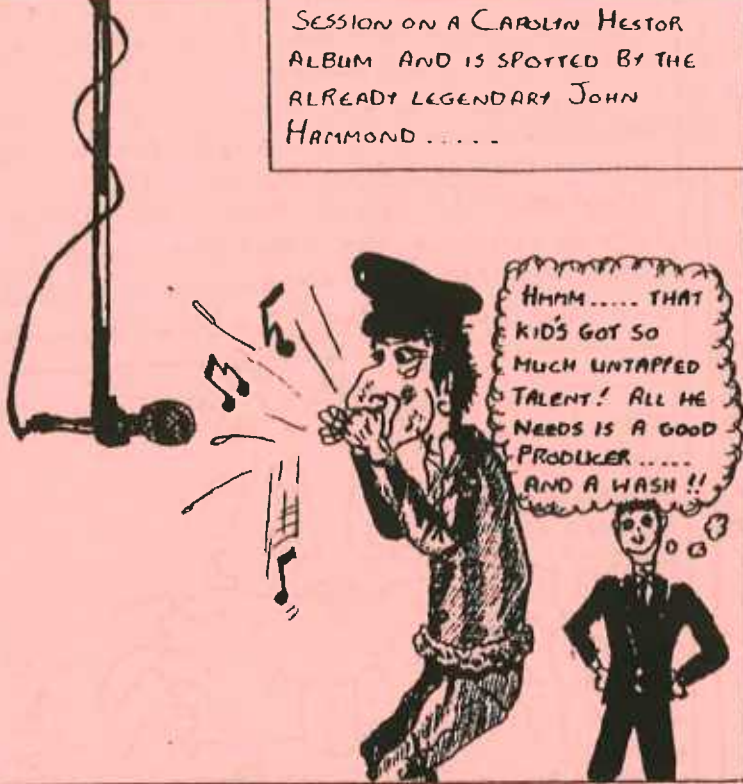 SESSION ON A CAROLYN HESTOR
ALBUM AND IS SPOTTED BY THE
ALREADY LEGENDARY JOHN
HAMMOND.....
HMMM..... THAT
KID'S GOT SO
MUCH UNTAPPED
TALENT! ALL HE
NEEDS IS A GOOD
PRODUCER.....
AND A WASH!!